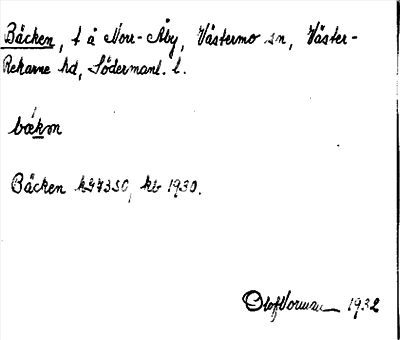 Bäcken, t å Norr-Åby, Västermo sn, Väster-
Rekarne hd, Södermanl. l.
bækɔn
Bäcken hS7350, kb 1930.
Olof 1932